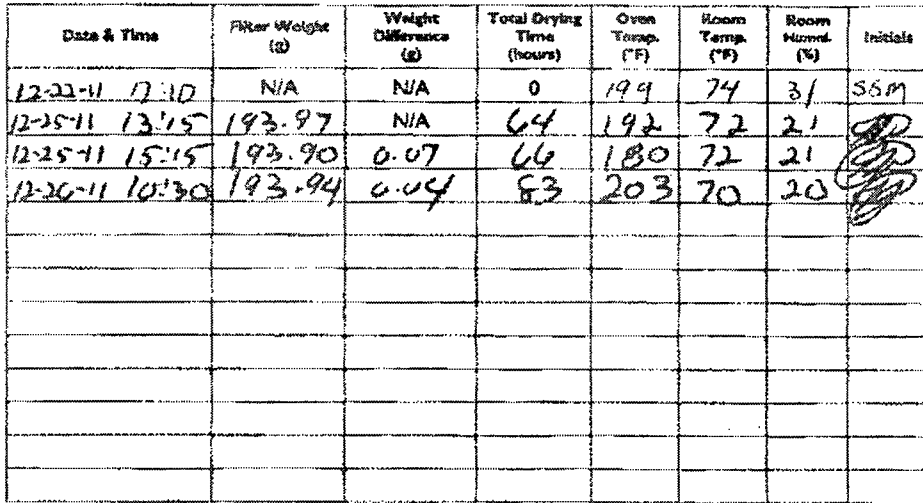 Date & Time Filter Weight (g) Weight Difference (g) Total Drying Time (hours) Oven Temp. (°F) Room Temp. (°F) Room Humid. (%) Initials
12-22-11 17:10 N/A N/A 0 199 74 31 SSM
12-25-11 13:15 193.97 N/A 64 192 72 21
12-25-11 15:15 193.90 0.07 66 180 72 21
12-26-11 10:30 193.94 0.04 83 203 70 20